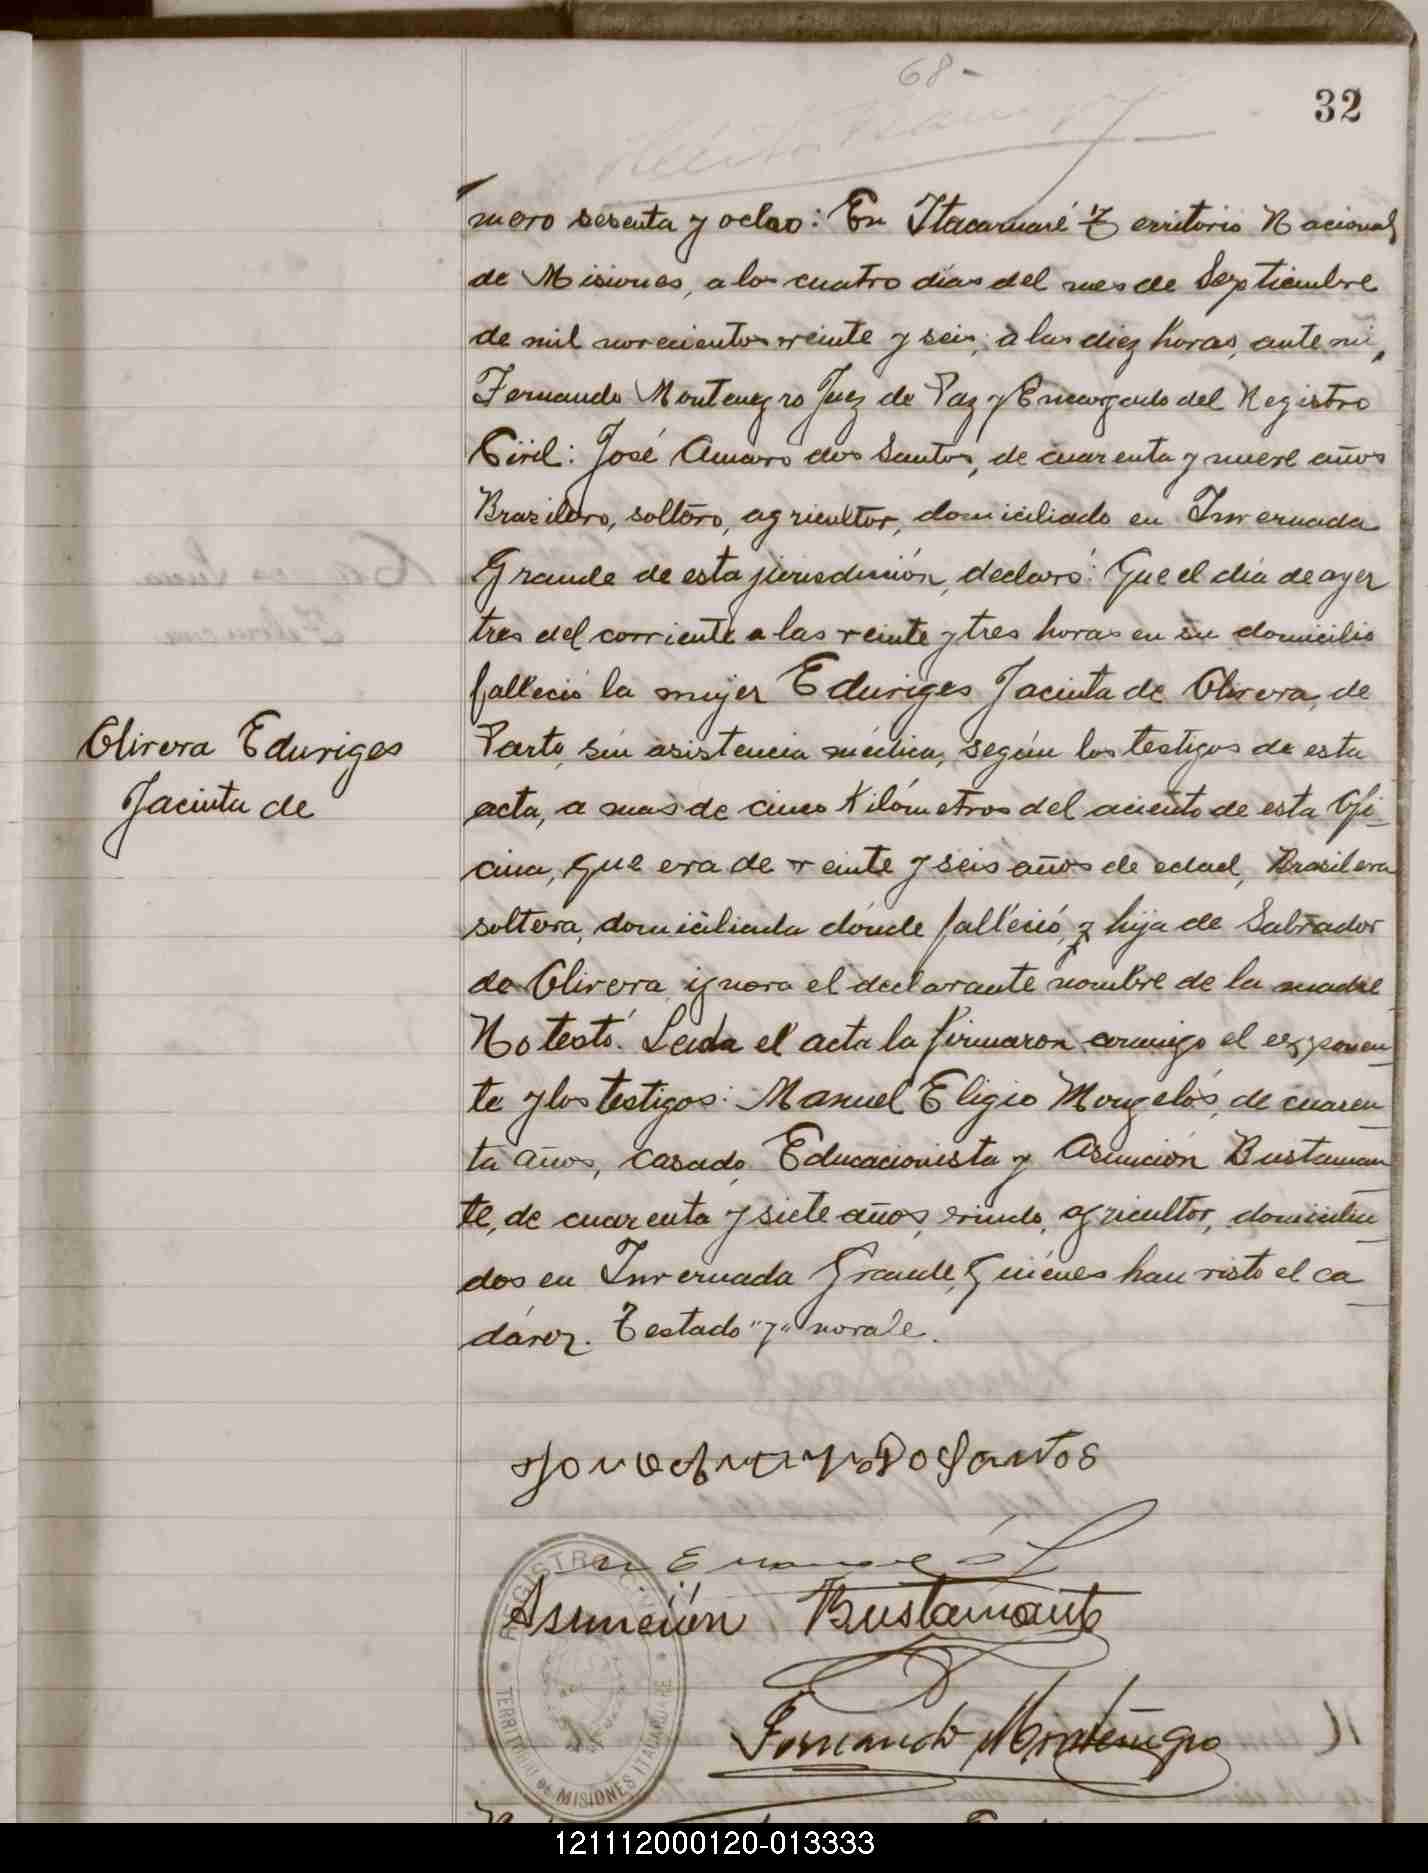 68-
32
mero sesenta y ocho: En Itacaruaré Territorio Nacional
de Misiones, a los cuatro días del mes de Septiembre
de mil novecientos veinte y seis, a las diez horas, ante mi,
Fernando Montenegro Juez de Paz y Encargado del Registro
Civil: José Amaro dos Santos, de cuarenta y nueve años
Brazilero, soltero, agricultor, domiciliado en Invernada
Grande de esta jurisdicción, declaró: Que el día de ayer
tres del corriente a las veinte y tres horas en su domicilio
falleció la mujer Eduviges Jacinta de Olivera, de
Parto, sin asistencia médica, según los testigos de esta
acta, a mas de cinco Kilómetros del aciento de esta Ofi-
cina, que era de veinte y seis años de edad, Brasilera
soltera, domiciliada dónde falleció, y hija de Salvador
de Olivera ignora el declarante nombre de la madre
No testó. Leida el acta la firmaron conmigo el exponen-
te y los testigos: Manuel Eligio Mongelós, de cuaren-
ta años, casado, Educacionista y Asunción Bustaman-
te, de cuarenta y siete años, viudo, agricultor, domicilia-
dos en Invernada Grande, Quiénes han visto el ca-
dáver. Testado "y" no vale.
Olivera Eduviges
Jacinta de
Dos Santos
Asunción Bustamante
Fernando Montenegro
REGISTRO CIVIL
TERRITORIO DE MISIONES ITACARUARE
121112000120-013333